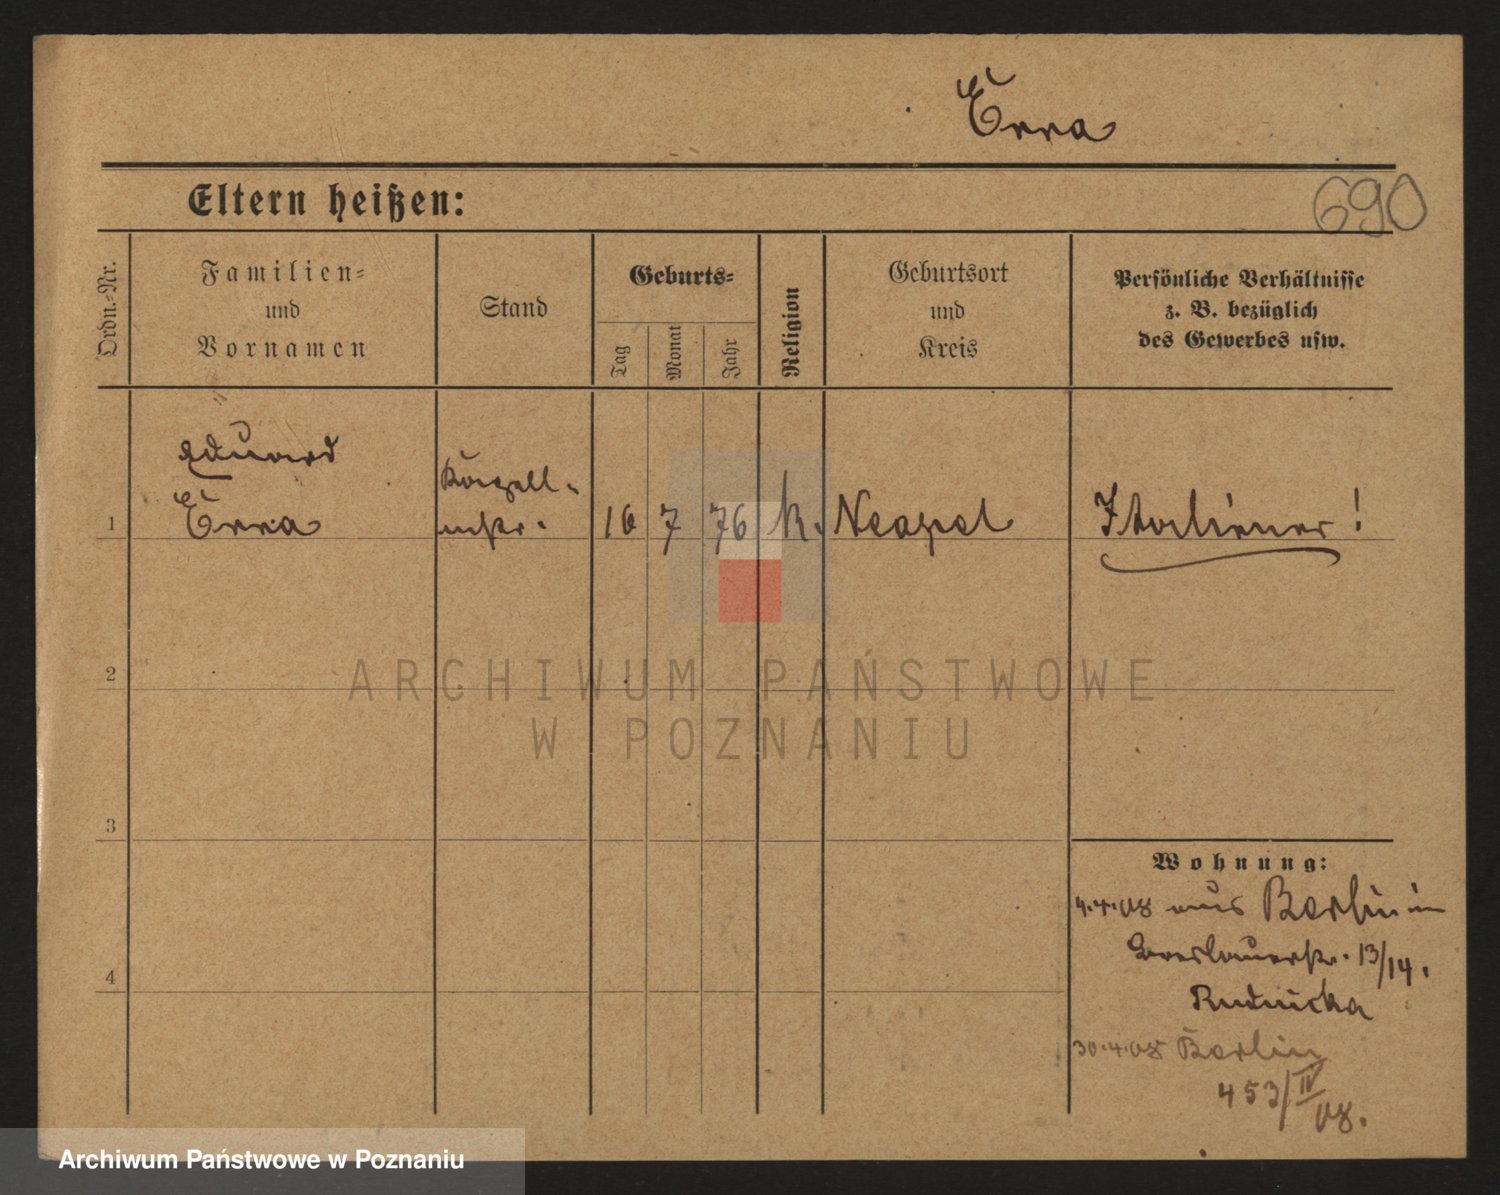 Erra
Eltern heißen:
690
Ordn.-Nr.
Familien-
und
Vornamen
Stand
Geburts-
Tag
Monat
Jahr
Religion
Geburtsort
und
Kreis
Persönliche Verhältnisse
z. B. bezüglich
des Gewerbes usw.
Eduard
1 Erra
16 7 76 k. Neapel Italiener!
2
ARCHIWUM PAŃSTWOWE
W POZNANIU
3
Wohnung:
4.4.08 aus Berlin in
Breslauerstr. 13/14.
4
Rudnicka
30.4.08 Berlin
453/IV 08.
Archiwum Państwowe w Poznaniu